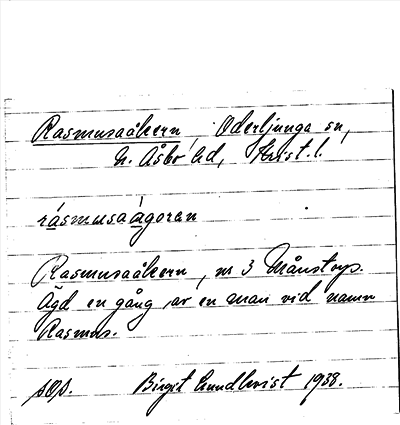 Rasmusaåkern, Oderljunga sn,
N. Åsbo hd, Krist. l.
ràsmusaágoran
Rasmusaåkern, nr 3 Månstorp.
Ägd en gång av en man vid namn
Rasmus.
Birgit Lundkvist 1938.